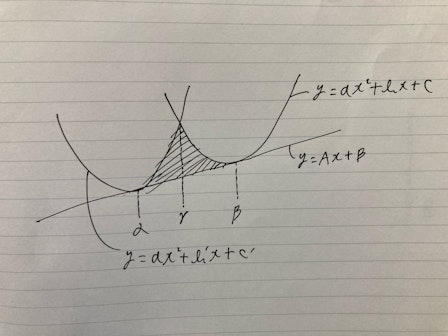 y=ax²+bx+c
y=Ax+B
α γ β
y=ax²+b'x+c'